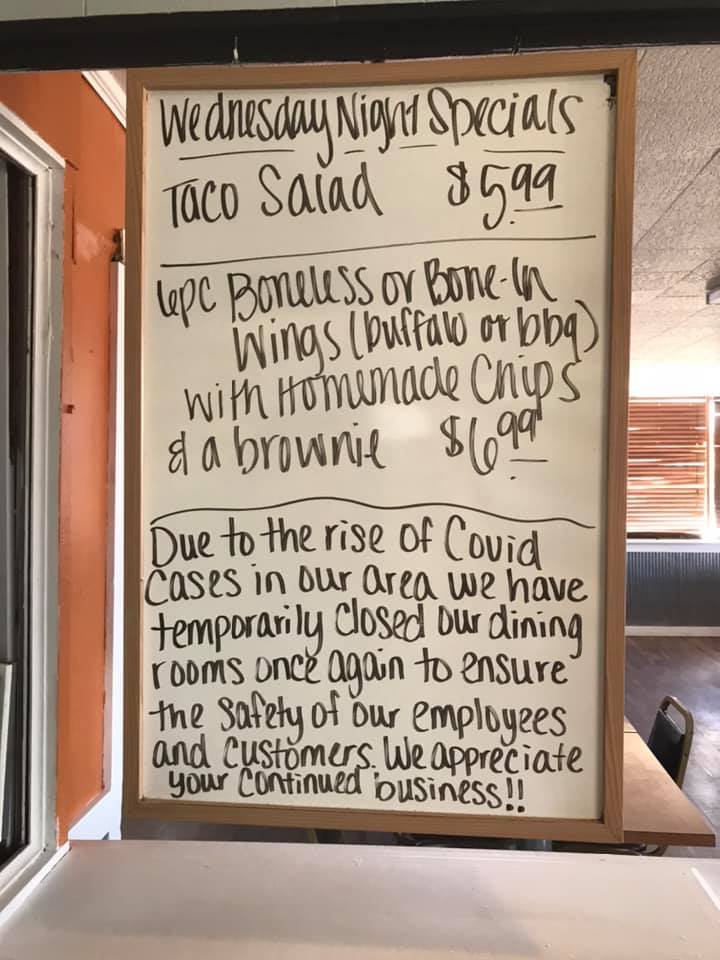 Wednesday Night Specials
Taco Salad $5.99
6pc Boneless or Bone-In
Wings (buffalo or bbq)
with Homemade Chips
& a brownie $6.99
Due to the rise of Covid
Cases in our area we have
temporarily closed our dining
rooms once again to ensure
the safety of our employees
and customers. We appreciate
your continued business!!